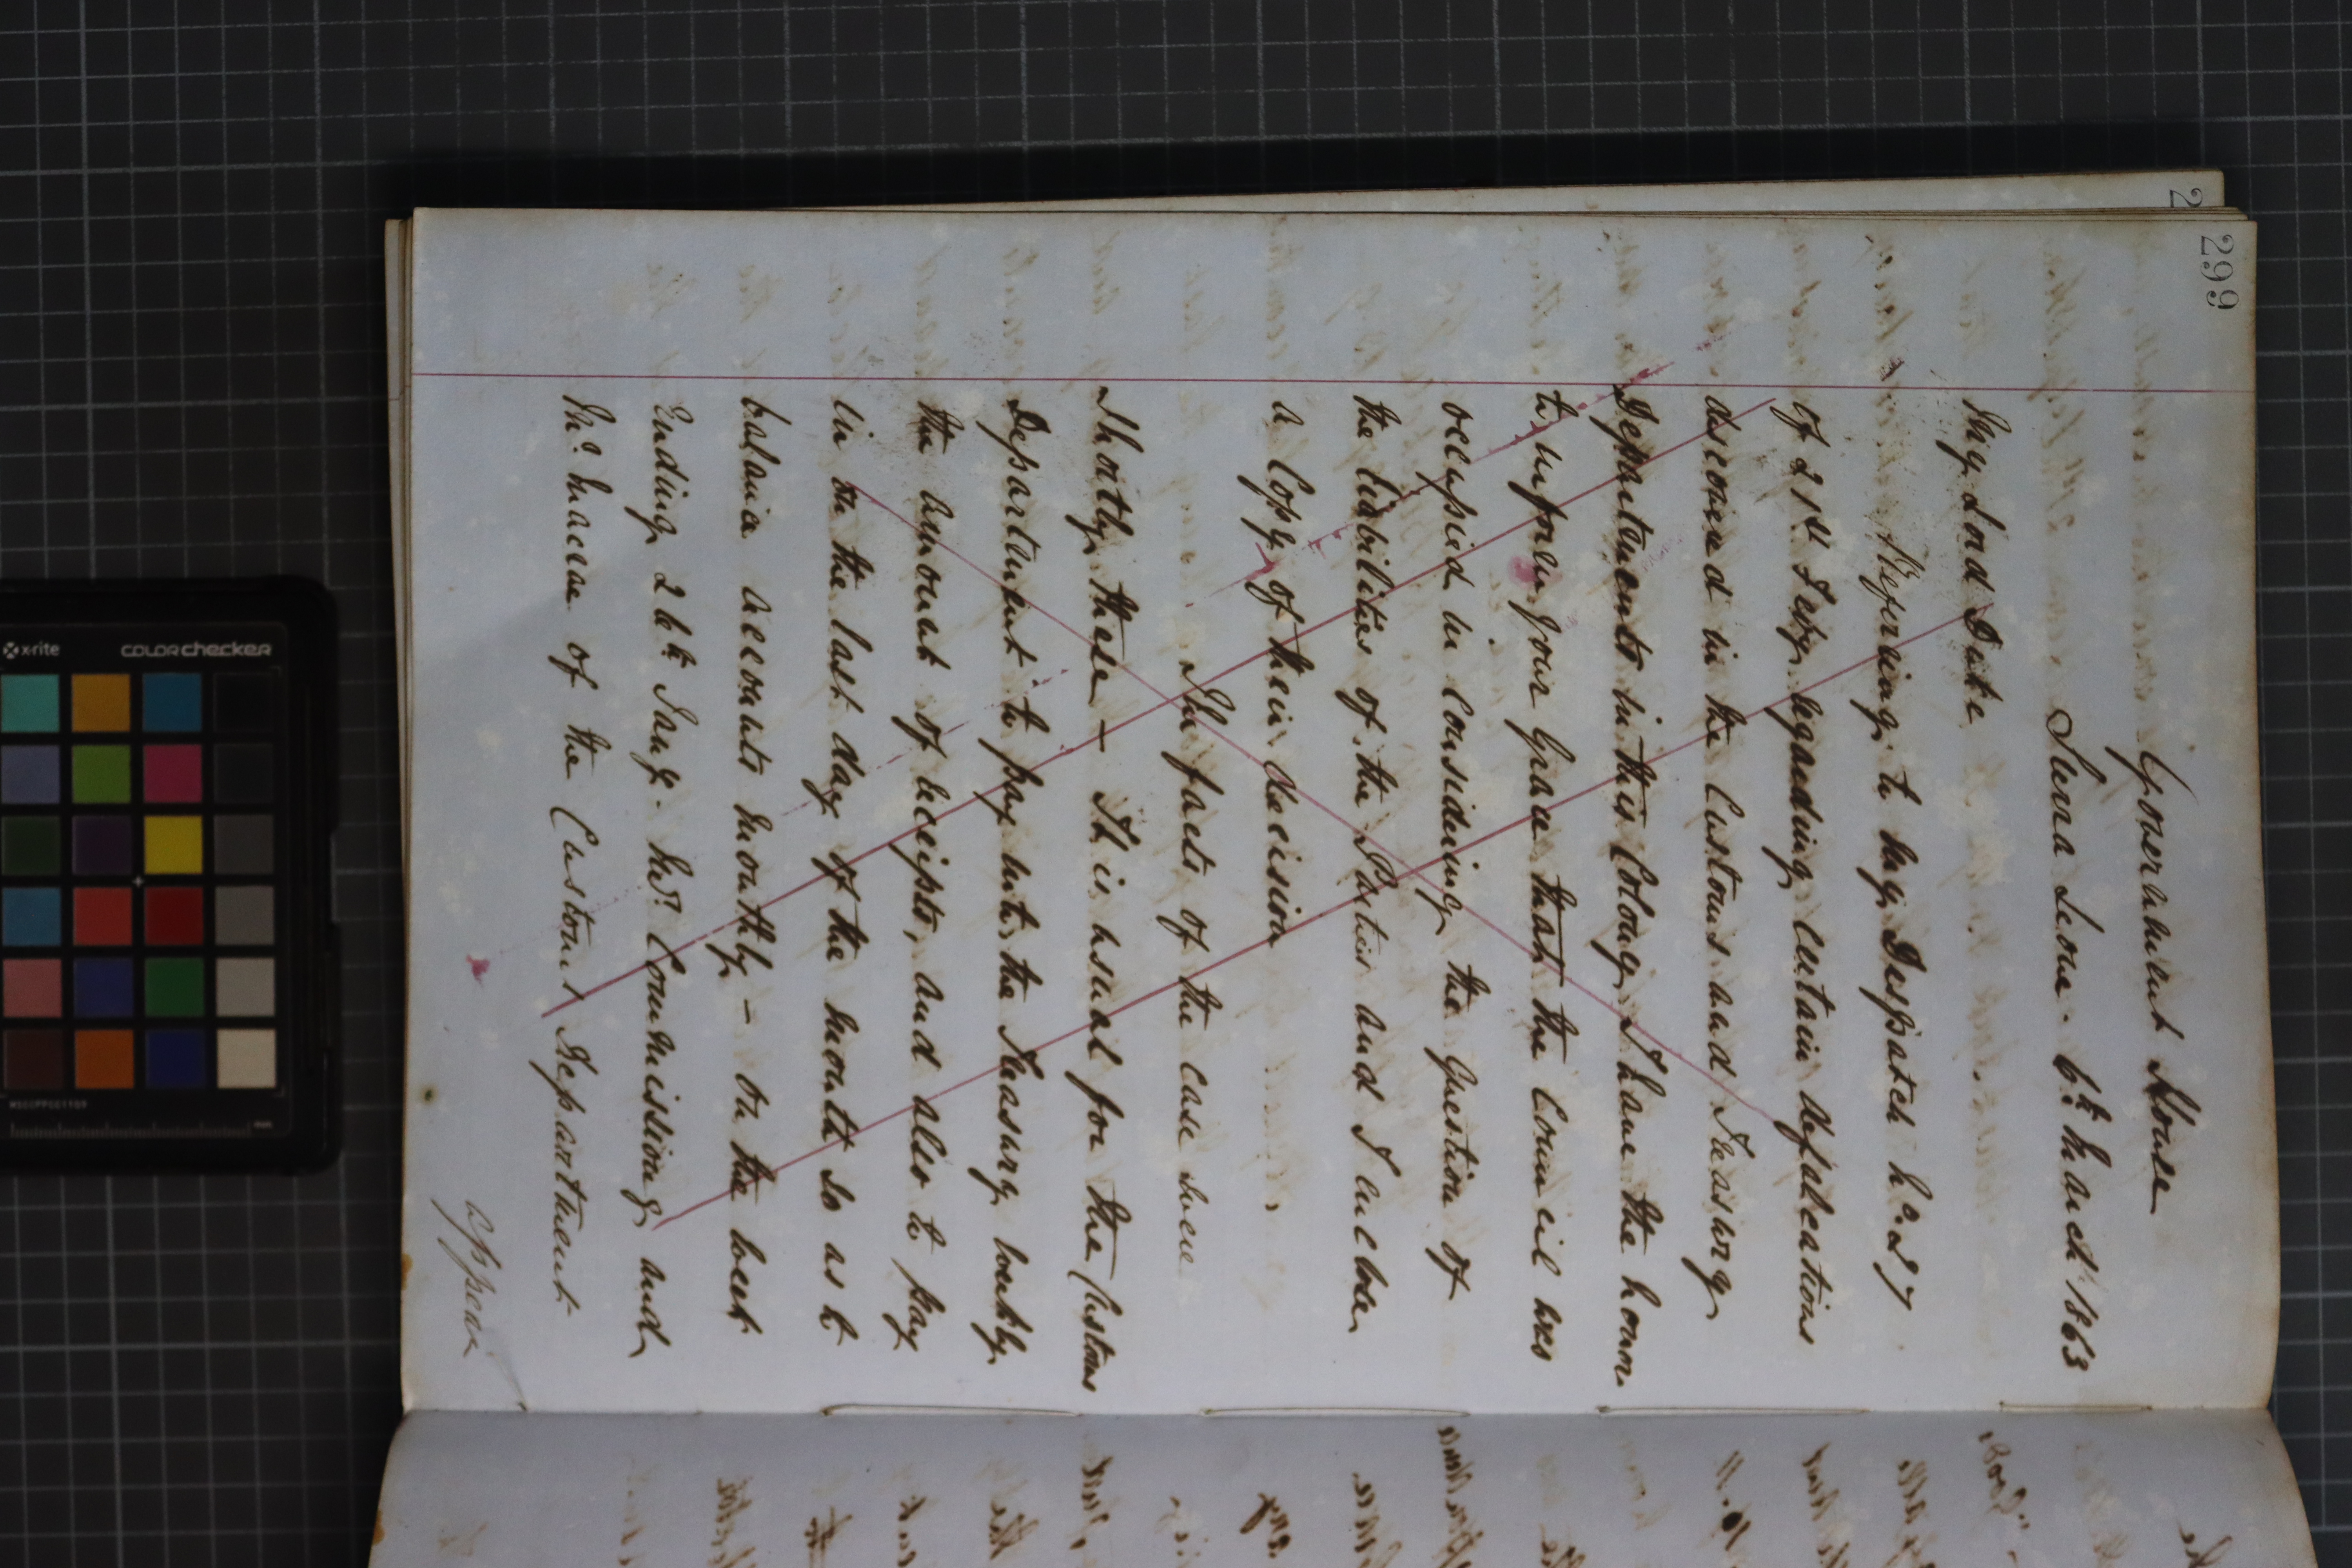 299
Government House
Sierra Leone. 6th March 1863
My Lord Duke
Referring to my Despatch No. 27
of 21st Feby. regarding certain defalcations
discovered in the Customs and Treasury
Departments in this Colony, I have the honor
to inform your Grace that the Council was
occupied in considering the question of
the liabilities of the Parties and I enclose
a Copy of their decision
The facts of the case were
Shortly these — It is usual for the Customs
Department to pay into the Treasury weekly
the amount of receipts, and also to pay
in on the last day of the month so as to
balance accounts monthly — On the week
Ending 24th Jany. Mr. Commissiong and
Mr. Macrae of the Customs Department
appear
x-rite
COLORchecker
MSCCPPCC1109